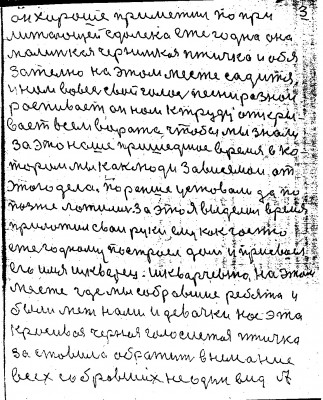 3
он хороше приметил по при
литающей сдалека ежегодна она
малинкая чернинкая птичка и обя
зателно на этом месте садится,
и нам во весь свой голос песни разной
распивает он нам к труду откри
вает всем вората, чтобы мы знали
за это наше пришедшие время в ко
тором мы как люди зависемои от
этого дела, пораньше уставали да по
позже ложили. За это я выделил время
приложил свои руки ему как гостю
ежегоднаму построел дом и присвоел
его имя шкварец. шкварчевно, на этом
месте где мы собравшие ребята и
были меж нами и девочки нас эта
красивая черная голосистая птичка
заставила обратит внимание
всех собравших не один вид А